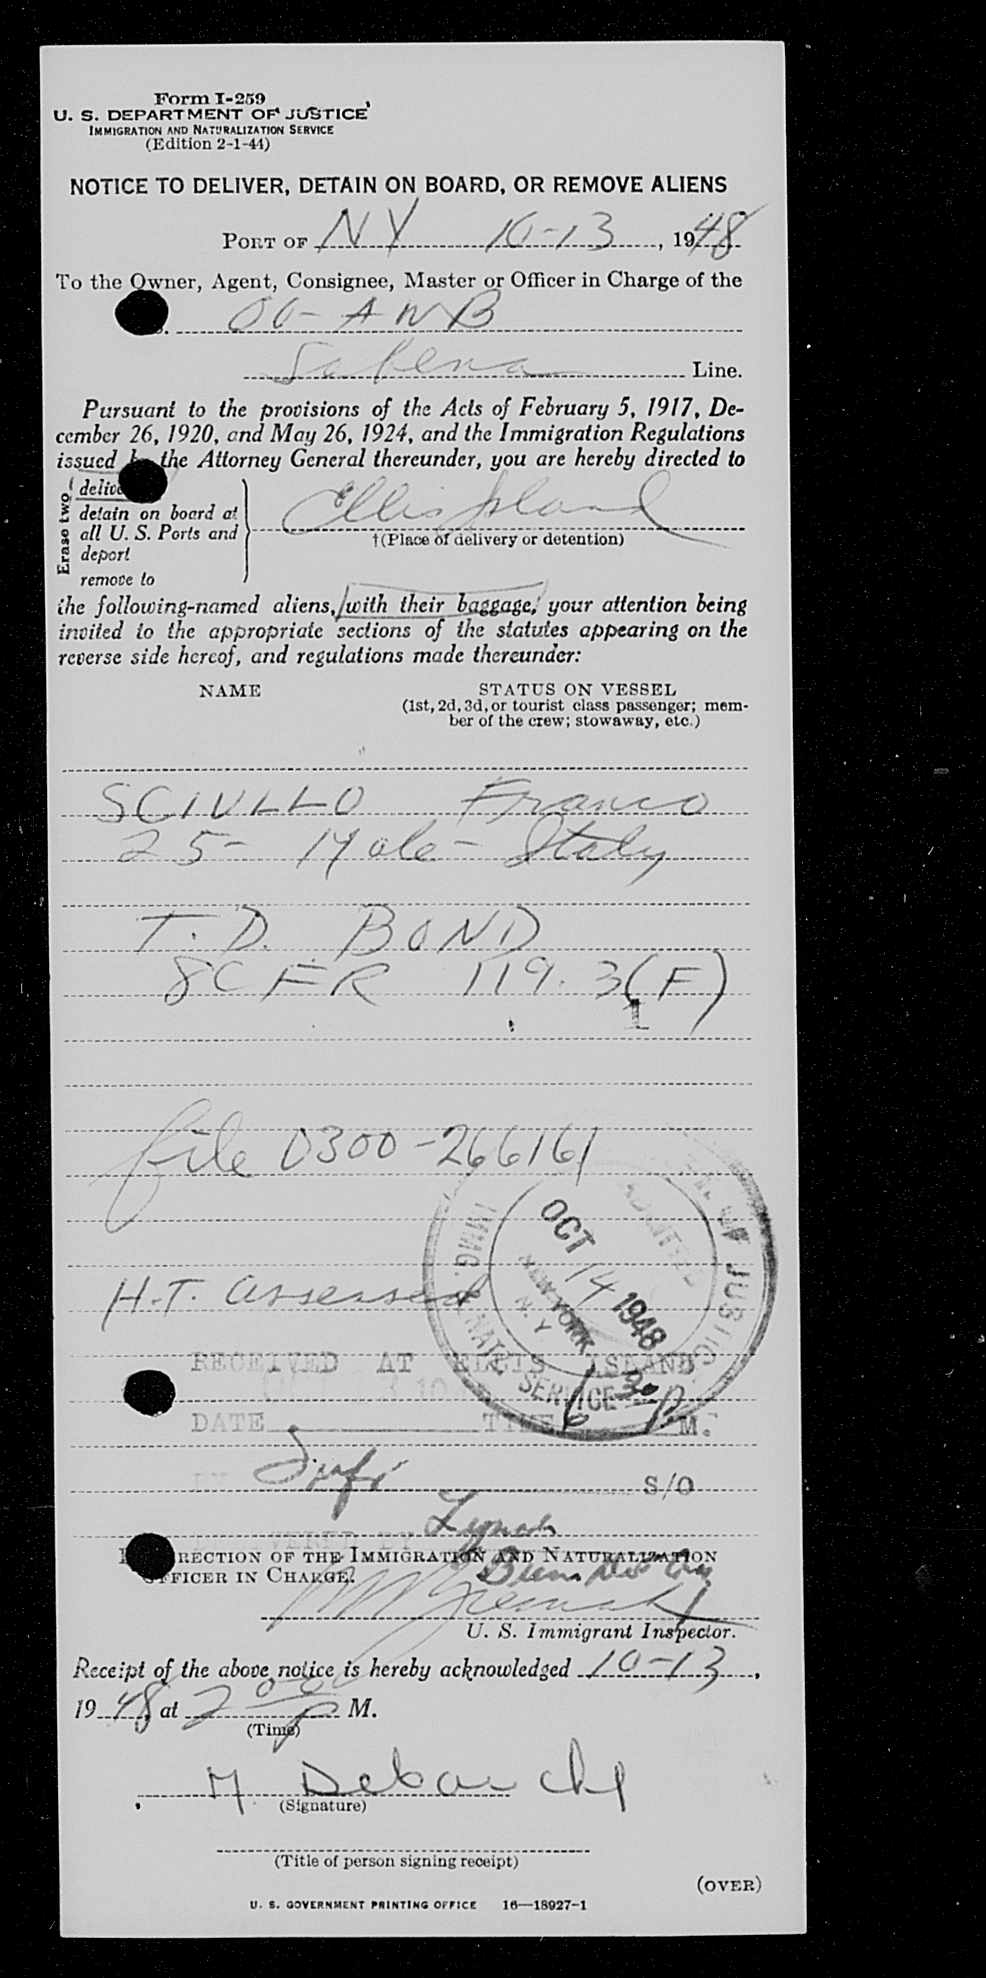 Form I-259
U. S. DEPARTMENT OF JUSTICE
IMMIGRATION AND NATURALIZATION SERVICE
(Edition 2-1-44)
NOTICE TO DELIVER, DETAIN ON BOARD, OR REMOVE ALIENS
PORT OF NY 10-13, 1948
To the Owner, Agent, Consignee, Master or Officer in Charge of the
OO-AWB
Sabena Line.
Pursuant to the provisions of the Acts of February 5, 1917, De-
cember 26, 1920, and May 26, 1924, and the Immigration Regulations
issued the Attorney General thereunder, you are hereby directed to
Erase two
detain on board at
all U. S. Ports and
deport
remove to
Ellis Island
†(Place of delivery or detention)
the following-named aliens, with their baggage, your attention being
invited to the appropriate sections of the statutes appearing on the
reverse side hereof, and regulations made thereunder:
NAME STATUS ON VESSEL
(1st, 2d, 3d, or tourist class passenger; mem-
ber of the crew; stowaway, etc.)
SCIULLO Franco
25- Male- Italy
T. D. BOND
8 CFR 119.3(F)
1
file 0300-266161
H.T. assessed
OF JUSTICE
IMMG. & NATZ. SERVICE
ADMITTED
OCT 14 1948
NEW YORK
N. Y.
RECEIVED AT ELLIS ISLAND
DATE TIME 6 30 P M.
S/O
Lynch
RECTION OF THE IMMIGRATION AND NATURALIZATION
OFFICER IN CHARGE.
U. S. Immigrant Inspector.
Receipt of the above notice is hereby acknowledged 10-13,
1948 at 2 00 P M.
(Time)
M.
(Signature)
(Title of person signing receipt)
(OVER)
U. S. GOVERNMENT PRINTING OFFICE 16—18927-1